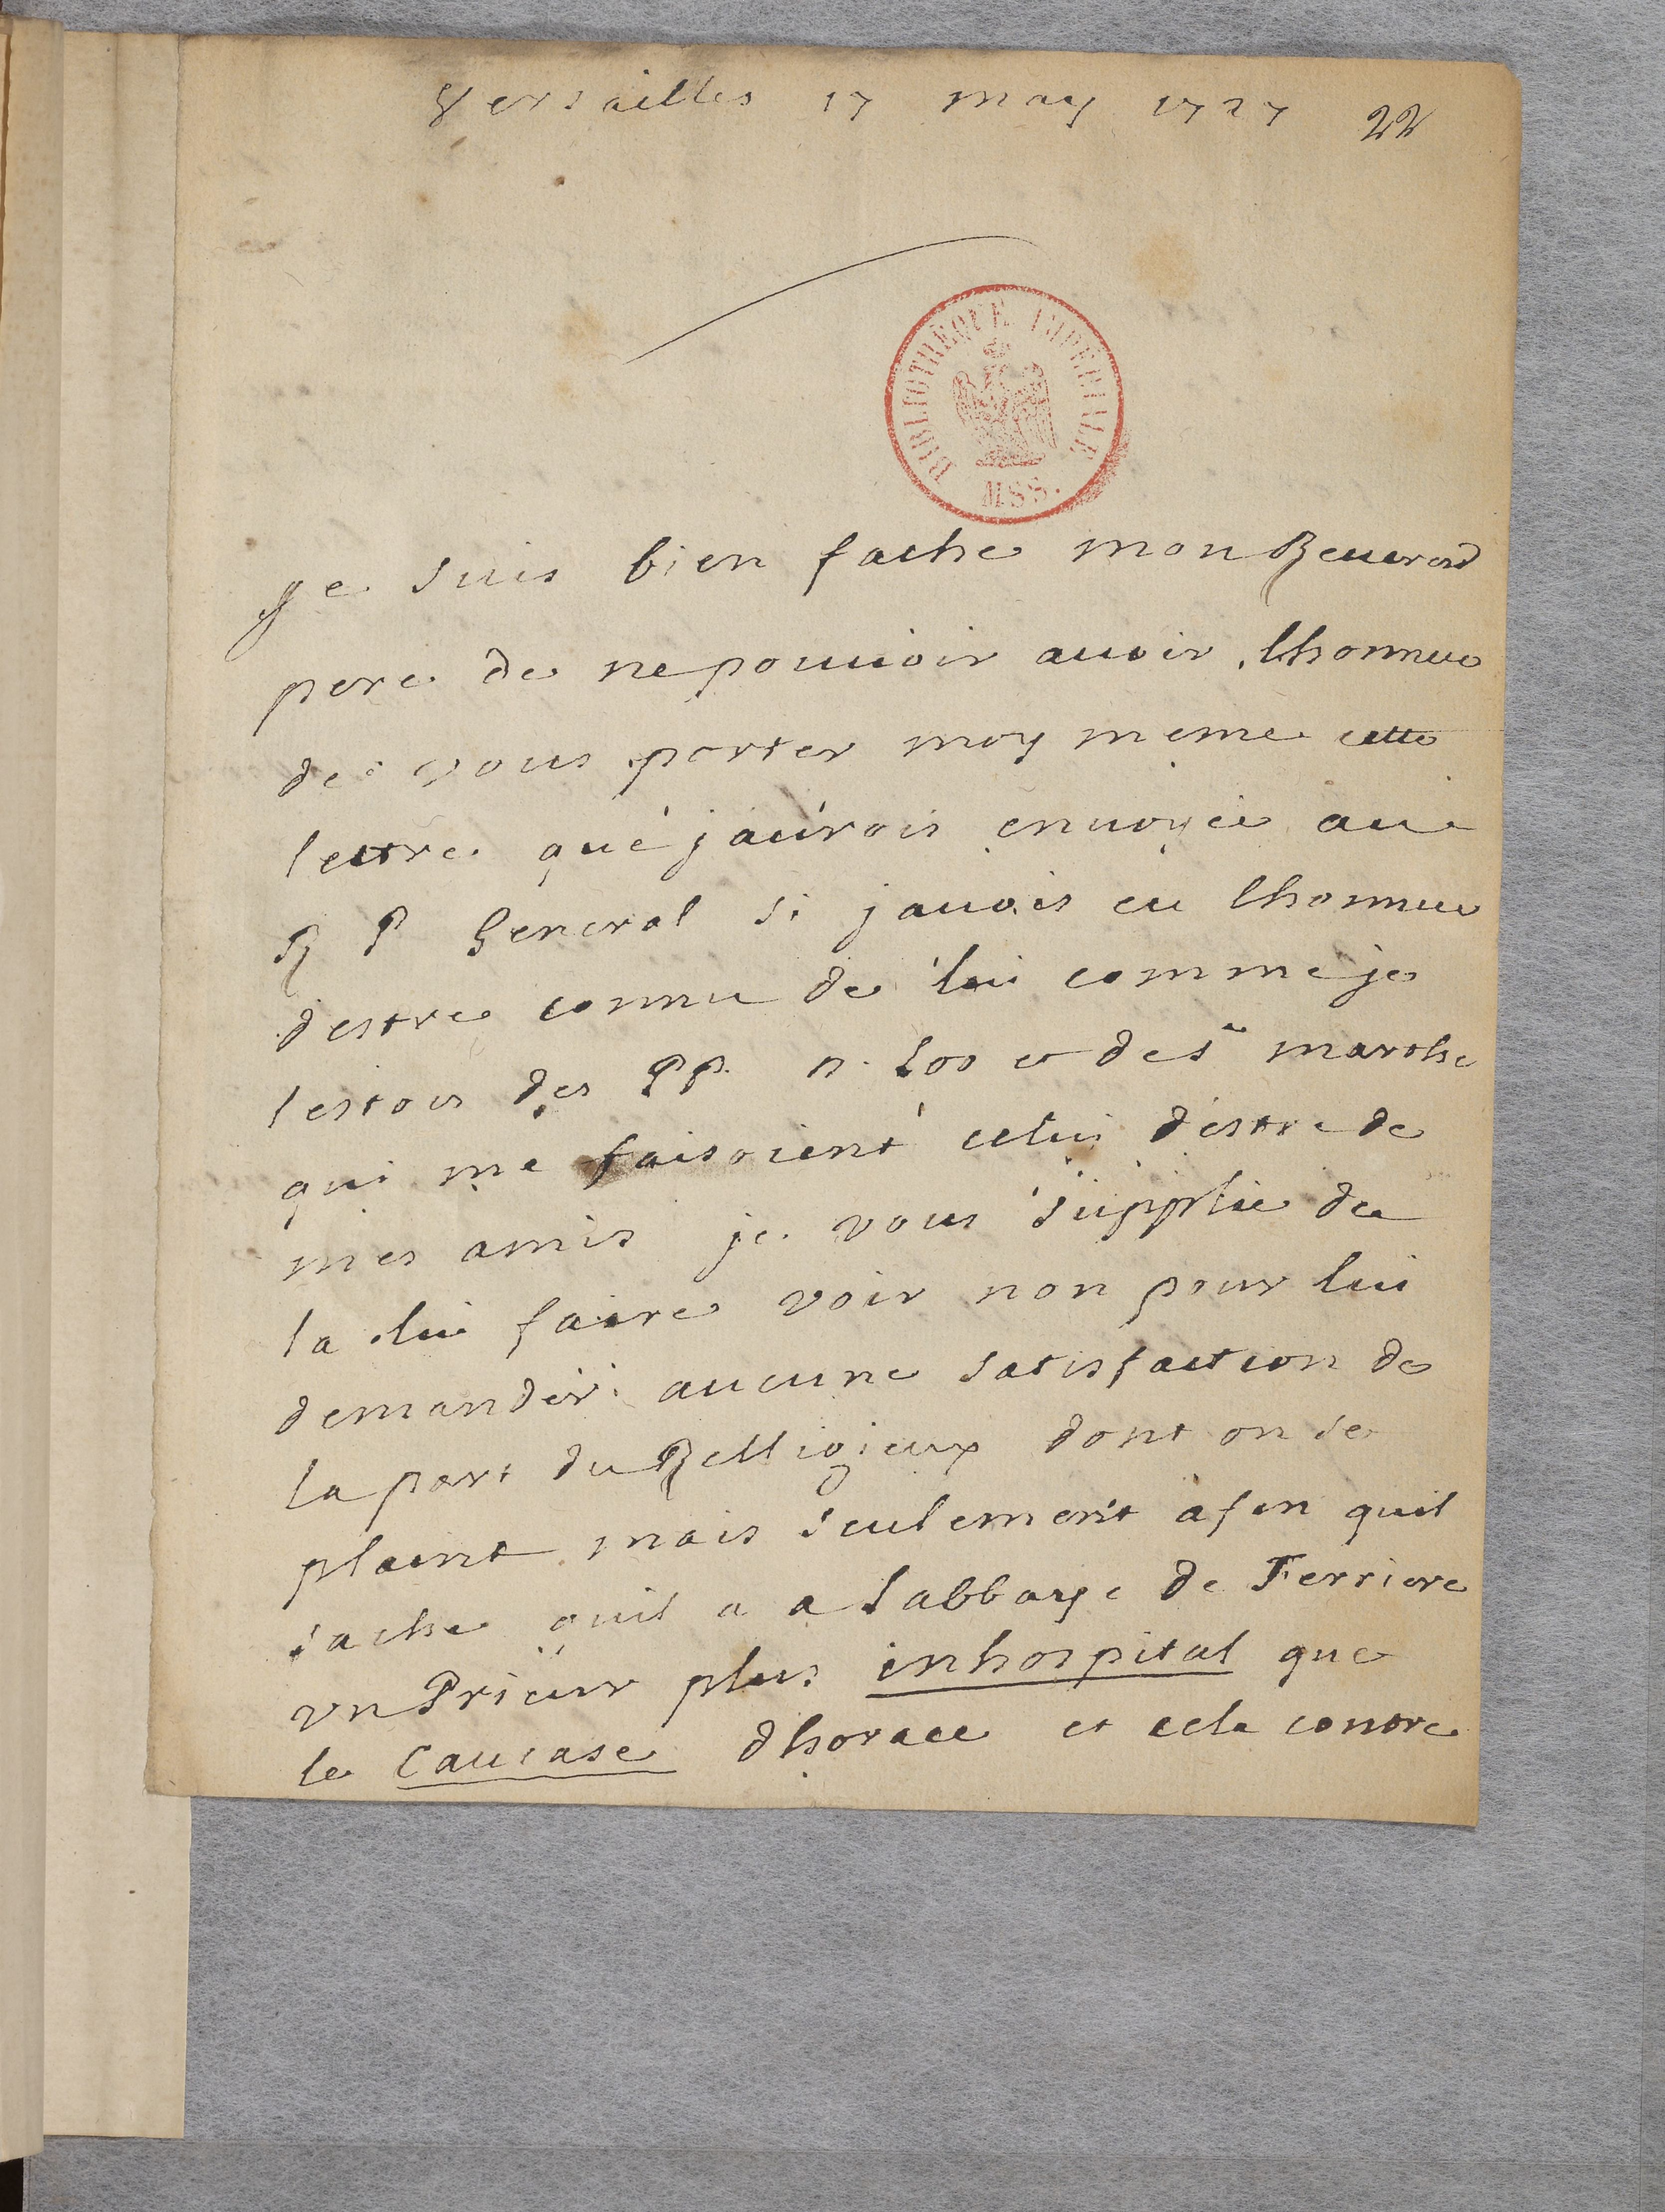 Versailles 17 may 1727 22
BIBLIOTHÈQUE IMPÉRIALE
MSS.
Je suis bien fache mon Reuerend
pere de ne pouuoir auoir lhonneur
de vous porter moy meme cette
lettre que jaurois enuoyée au
R P General si jauois eu lhonneur
destre connu de lui comme je
lestois des PP. et de ste marthe
qui me faisoient celui destre de
mes amis je vous supplie de
la lui faire voir non pour lui
demander aucune satisfaction de
la part du Relligieux dont on se
plaint mais seulement afin quil
sache quil a a labbaye de Ferriere
vn Prieur plus inhospital que
le Caucase dhorace et cela contre